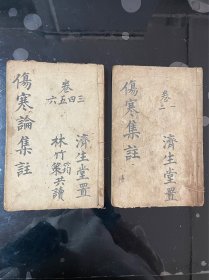 濟生堂置
卷一二
傷寒集註
濟生堂置
卷
三四五六
林竹策共讀
傷寒論集註